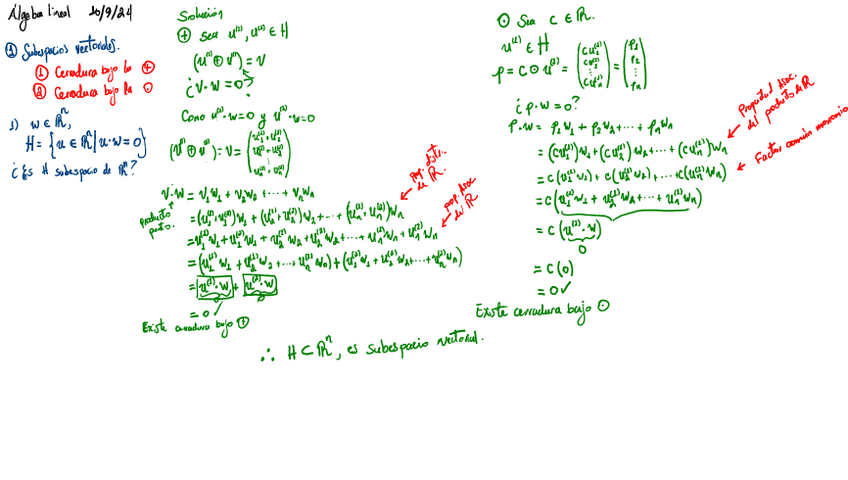 Álgebra lineal 10/9/24
① Subespacios vectoriales.
① Cerradura bajo la ⊕
② Cerradura bajo la ⊙
1) w ∈ ℝⁿ,
H = {u ∈ ℝⁿ | u·w = 0}
¿Es H subespacio de ℝⁿ?
Solución
⊕ sea u⁽¹⁾, u⁽²⁾ ∈ H
(u⁽¹⁾ ⊕ u⁽²⁾) = v
¿v·w = 0?
Como u⁽¹⁾·w = 0 y u⁽²⁾·w = 0
(u⁽¹⁾ ⊕ u⁽²⁾) = v = (u₁⁽¹⁾ + u₁⁽²⁾
u₂⁽¹⁾ + u₂⁽²⁾
⋮
uₙ⁽¹⁾ + uₙ⁽²⁾)
v·w = v₁w₁ + v₂w₂ + ··· + vₙwₙ
producto punto.
= (u₁⁽¹⁾+u₁⁽²⁾)w₁ + (u₂⁽¹⁾+u₂⁽²⁾)w₂ + ··· + (uₙ⁽¹⁾+uₙ⁽²⁾)wₙ
prop. distr. de ℝ.
= u₁⁽¹⁾w₁ + u₁⁽²⁾w₁ + u₂⁽¹⁾w₂ + u₂⁽²⁾w₂ + ··· + uₙ⁽¹⁾wₙ + uₙ⁽²⁾wₙ
prop. Asoc. de ℝ
= (u₁⁽¹⁾w₁ + u₂⁽¹⁾w₂ + ··· + uₙ⁽¹⁾wₙ) + (u₁⁽²⁾w₁ + u₂⁽²⁾w₂ + ··· + uₙ⁽²⁾wₙ)
= u⁽¹⁾·w + u⁽²⁾·w
0 0
= 0 ✓
Existe cerradura bajo ⊕
⊙ Sea c ∈ ℝ.
u⁽¹⁾ ∈ H
p = c ⊙ u⁽¹⁾ = (cu₁⁽¹⁾
cu₂⁽¹⁾
⋮
cuₙ⁽¹⁾) = (p₁
p₂
⋮
pₙ)
¿p·w = 0?
p·w = p₁w₁ + p₂w₂ + ··· + pₙwₙ
Propiedad Asoc. del producto de ℝ
= (cu₁⁽¹⁾)w₁ + (cu₂⁽¹⁾)w₂ + ··· + (cuₙ⁽¹⁾)wₙ
= c(u₁⁽¹⁾w₁) + c(u₂⁽¹⁾w₂) + ··· + c(uₙ⁽¹⁾wₙ)
Factor común monomio
= c(u₁⁽¹⁾w₁ + u₂⁽¹⁾w₂ + ··· + uₙ⁽¹⁾wₙ)
= c(u⁽¹⁾·w)
0
= c(0)
= 0 ✓
Existe cerradura bajo ⊙
∴ H ⊂ ℝⁿ, es subespacio vectorial.